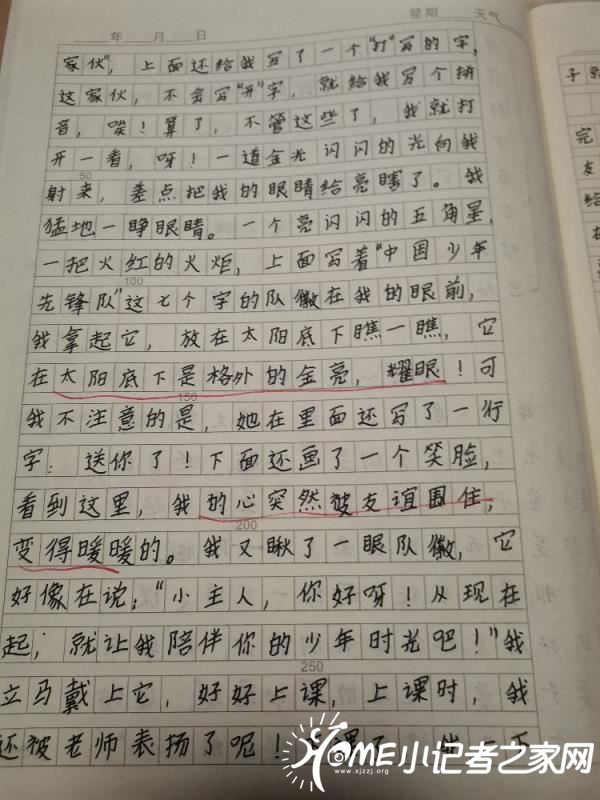 年 月 日 星期 天气
家伙”，上面还给我写了一个“打”写的字，
这家伙，不会写“开”字，就给我写个拼
音，唉！算了，不管这些了，我就打
开一看，呀！一道金光闪闪的光向我
50
射来，差点把我的眼睛给亮瞎了。我
猛地一睁眼睛。一个亮闪闪的五角星，
一把火红的火炬，上面写着“中国少年
100
先锋队”这七个字的队徽在我的眼前，
我拿起它，放在太阳底下瞧一瞧，它
在太阳底下是格外的金亮，耀眼！可
150
我不注意的是，她在里面还写了一行
字：送你了！下面还画了一个笑脸，
看到这里，我的心突然被友谊围住，
200
变得暖暖的。我又瞅了一眼队徽，它
好像在说：“小主人，你好呀！从现在
起，就让我陪伴你的少年时光吧！”我
250
立马戴上它，好好上课，上课时，我
还被老师表扬了呢！
子
完
友
给
HOME小记者之家网
www.xjzzj.org